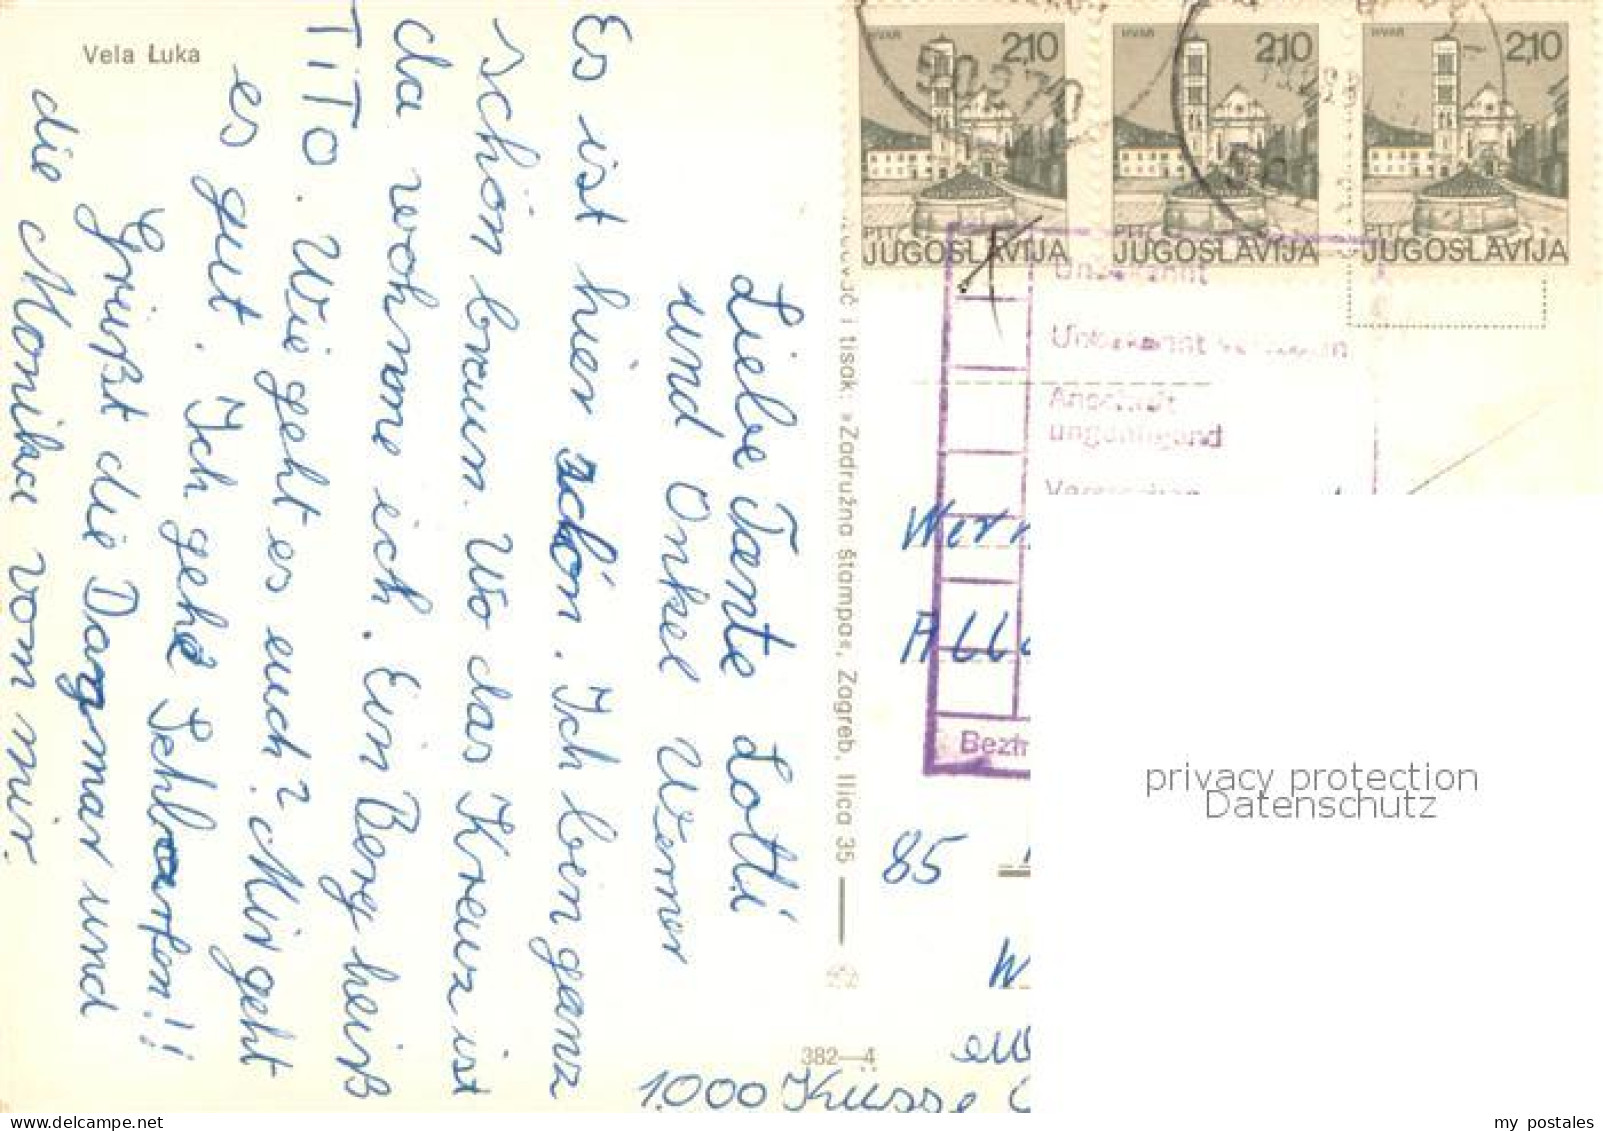 Vela Luka
Liebe Tante Lotti
und Onkel Werner
Es ist hier schön. Ich bin ganz
schön braun. Wo das Kreuz ist
da wohnne ich. Ein Berg heiß
TiTO. Wie geht es euch? Mir geht
es gut. Ich gehe Schlafen!!
Grüßt die Dagmar und
die Monika vom mir.
1.000 Küsse
382—4
i tisak: »Zadružna štampa«, Zagreb, Ilica 35
HVAR
210
PTT
JUGOSLAVIJA
HVAR
210
PTT
JUGOSLAVIJA
HVAR
2,10
PTT
JUGOSLAVIJA
50270
Unbekannt
Unbekannt verzogen
Anschrift
ungenügend
Bezir
Wern
85
privacy protection
Datenschutz
my postales